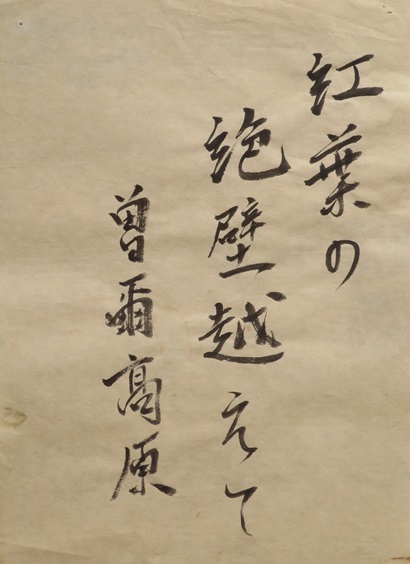 紅葉の
絶壁越えて
曽爾高原